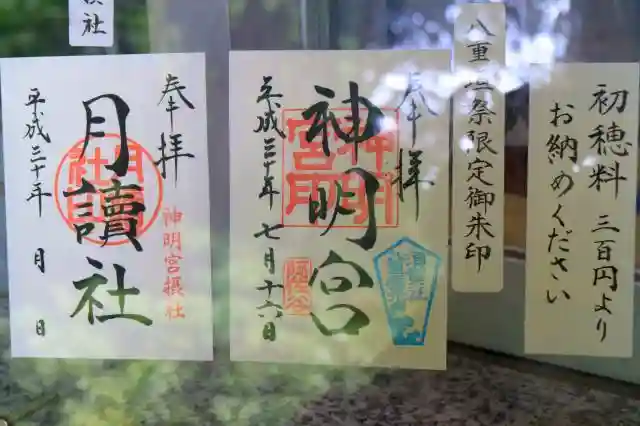 初穂料 三百円より
お納めください
八重垣祭限定御朱印
奉拝
神明宮
平成三十年七月十六日
社
奉拝
月讀社
神明宮摂社
平成三十年 月 日